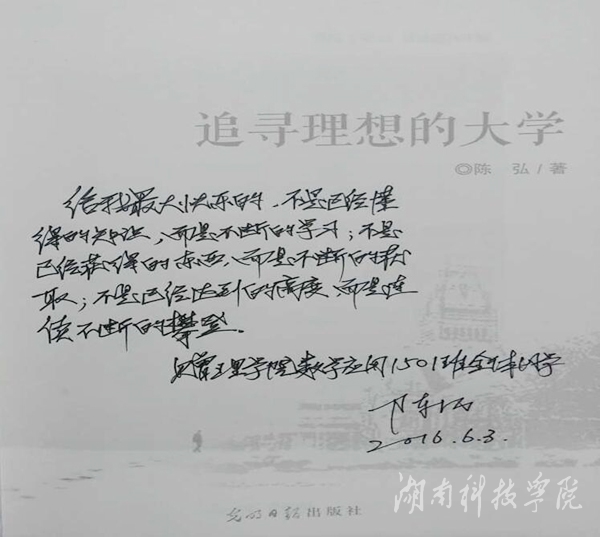 追寻理想的大学
◎陈 弘/著
给我最大快乐的,不是已经懂
得的知识,而是不断的学习;不是
已经获得的东西,而是不断的获
取;不是已经达到的高度,而是连
续不断的攀登.
理学院数学应用1501班全体同学
2016.6.3.
光明日报出版社
湖南科技学院